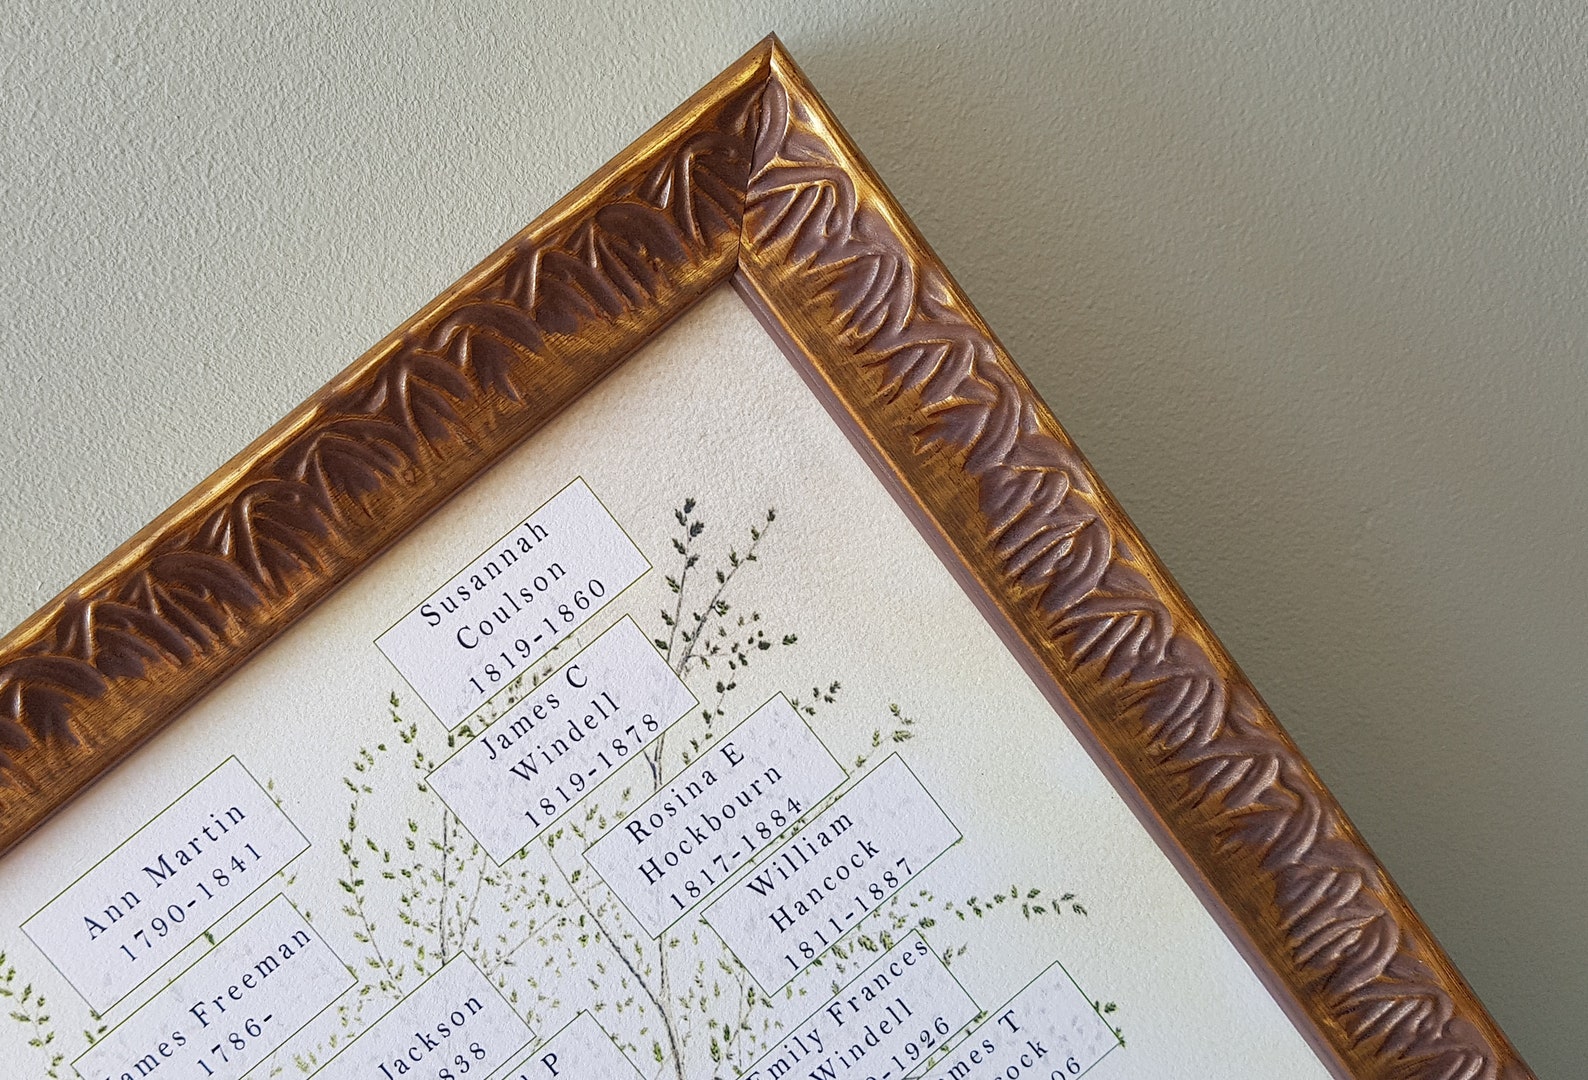 Susannah
Coulson
1819-1860
James C
Windell
1819-1878
Rosina E
Hockbourn
1817-1884
William
Hancock
1811-1887
Ann Martin
1790-1841
James Freeman
1786-
Jackson
838
P
Emily Frances
Windell
-1926
mes T
cock
06